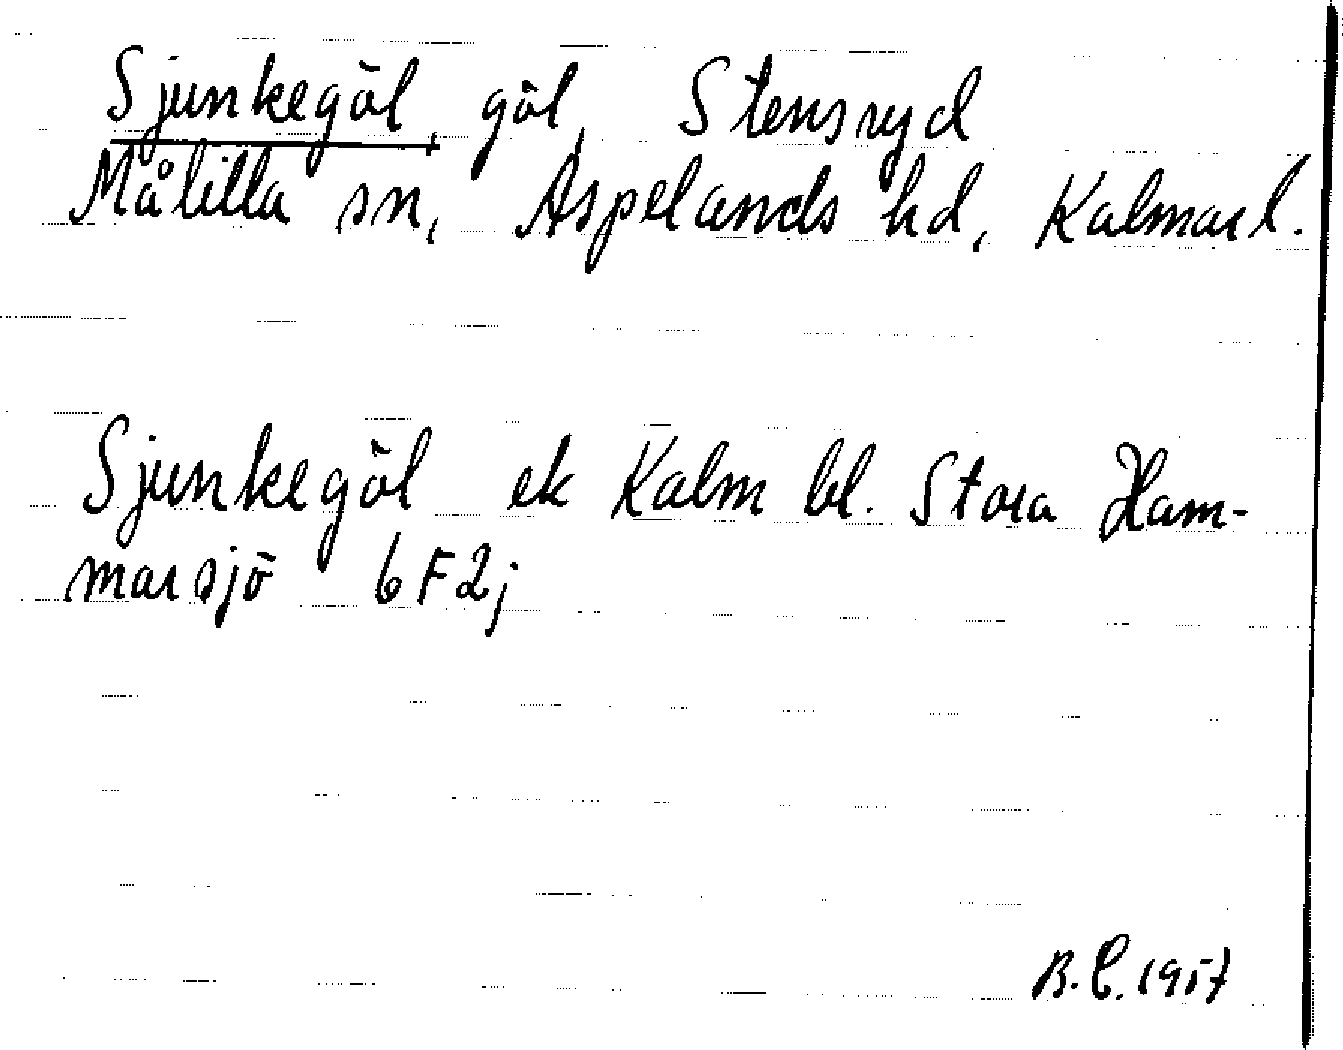 Sjunkegöl, göl, Stensryd
Målilla sn, Aspelands hd, Kalmar l.
Sjunkegöl ek Kalm bl. Stora Ham-
marsjö 6F2j
B.C. 1957